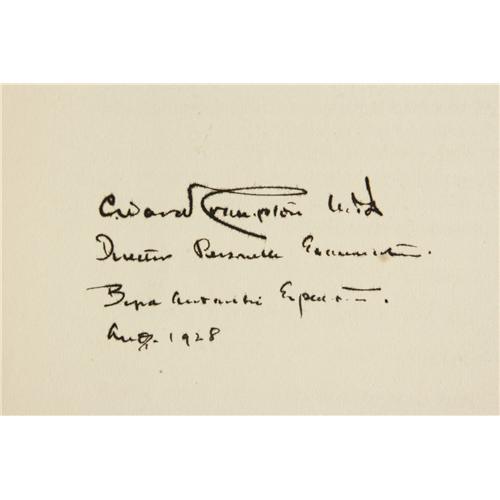 C. Ward Crampton M.D.
Director Personnel Examination.
Byrd Antarctic Expedition.
Aug. 1928